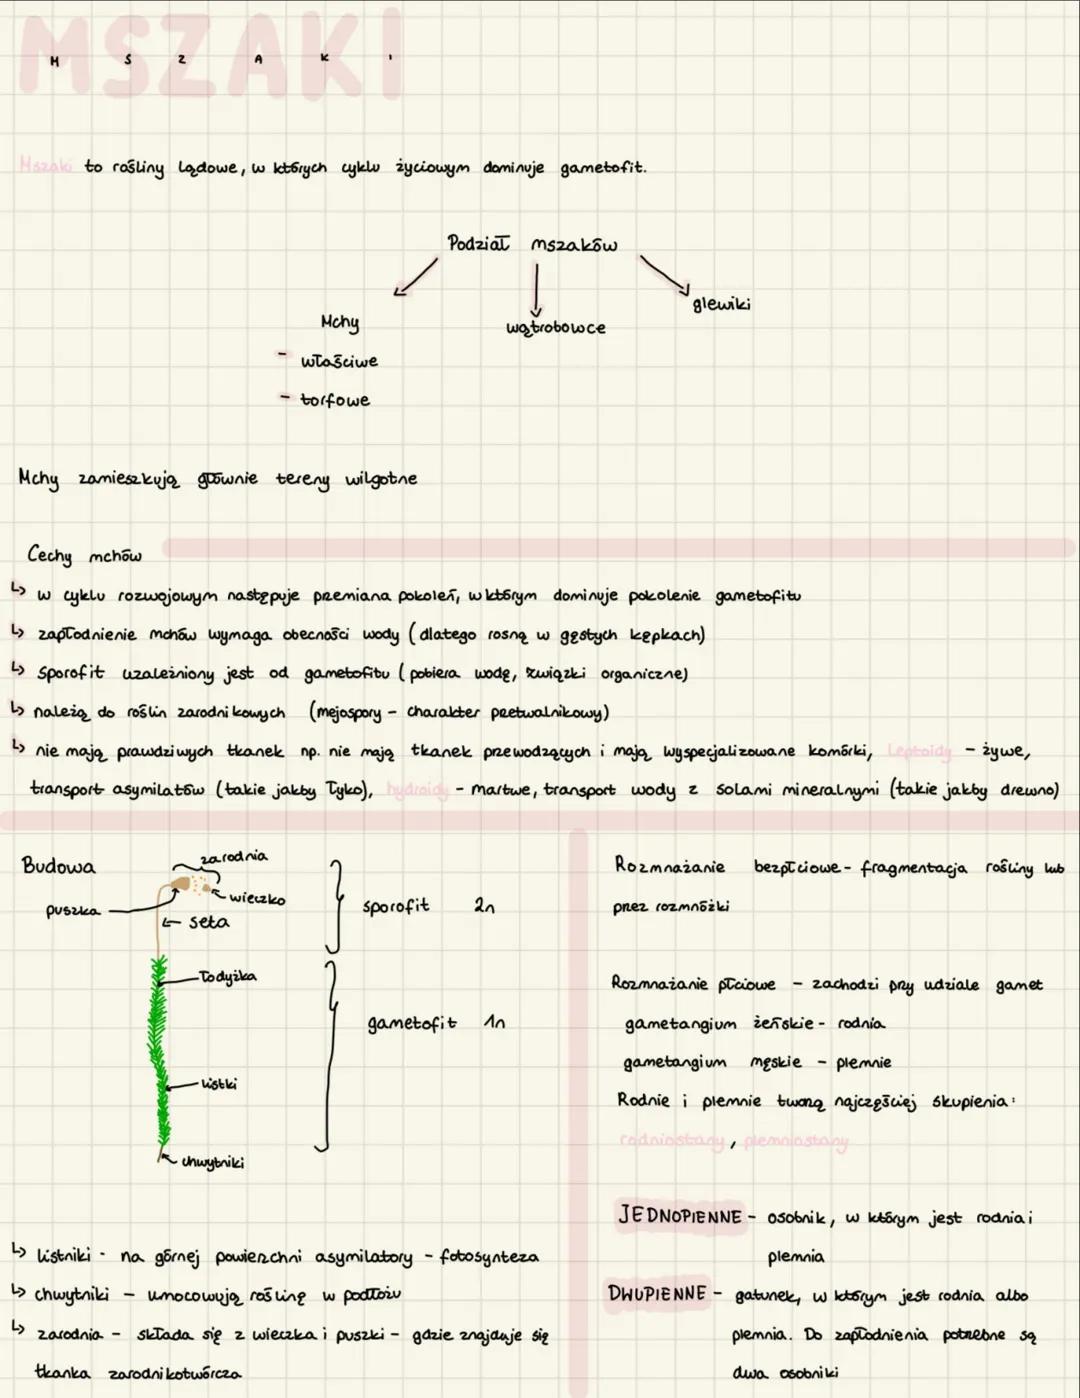 MSZAKI
M S Z A K I
Mszaki to rośliny lądowe, w których cyklu życiowym dominuje gametofit.
Podział mszaków
glewiki
Mchy
wątrobowce
- właściwe
- torfowe
Mchy zamieszkują głównie tereny wilgotne
Cechy mchów
↳ w cyklu rozwojowym następuje przemiana pokoleń, w którym dominuje pokolenie gametofitu
↳ zapłodnienie mchów wymaga obecności wody (dlatego rosną w gęstych kępkach)
↳ Sporofit uzależniony jest od gametofitu (pobiera wodę, związki organiczne)
↳ należą do roślin zarodnikowych (mejospory - charakter przetwalnikowy)
↳ nie mają prawdziwych tkanek np. nie mają tkanek przewodzących i mają wyspecjalizowane komórki, Leptoidy - żywe,
transport asymilatów (takie jakby łyko), hydroidy - martwe, transport wody z solami mineralnymi (takie jakby drewno)
Budowa
zarodnia
wieczko
puszka
seta
sporofit 2n
łodyżka
gametofit 1n
listki
chwytniki
↳ listniki - na górnej powierzchni asymilatory - fotosynteza
↳ chwytniki - umocowują roślinę w podłożu
↳ zarodnia - składa się z wieczka i puszki - gdzie znajduje się
tkanka zarodnikotwórcza
Rozmnażanie bezpłciowe - fragmentacja rośliny lub
przez rozmnóżki
Rozmnażanie płciowe - zachodzi przy udziale gamet
gametangium żeńskie - rodnia
gametangium męskie - plemnie
Rodnie i plemnie tworzą najczęściej skupienia:
rodniostany, plemniostany
JEDNOPIENNE - osobnik, w którym jest rodnia i
plemnia
DWUPIENNE - gatunek, w którym jest rodnia albo
plemnia. Do zapłodnienia potrzebne są
dwa osobniki